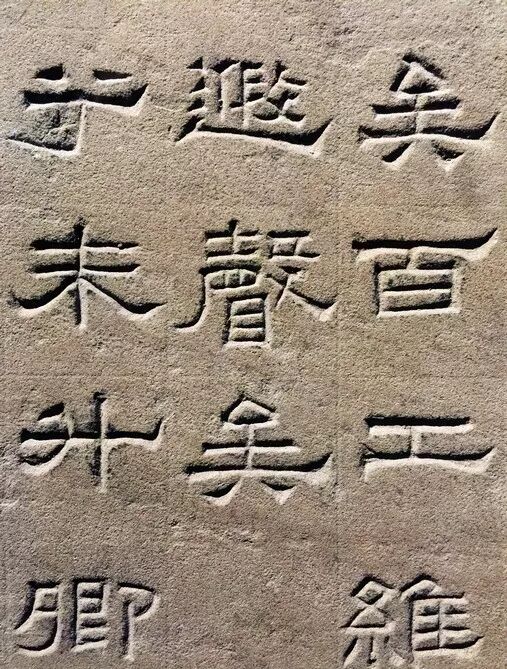 矣百工維
遐聲矣
未升卿